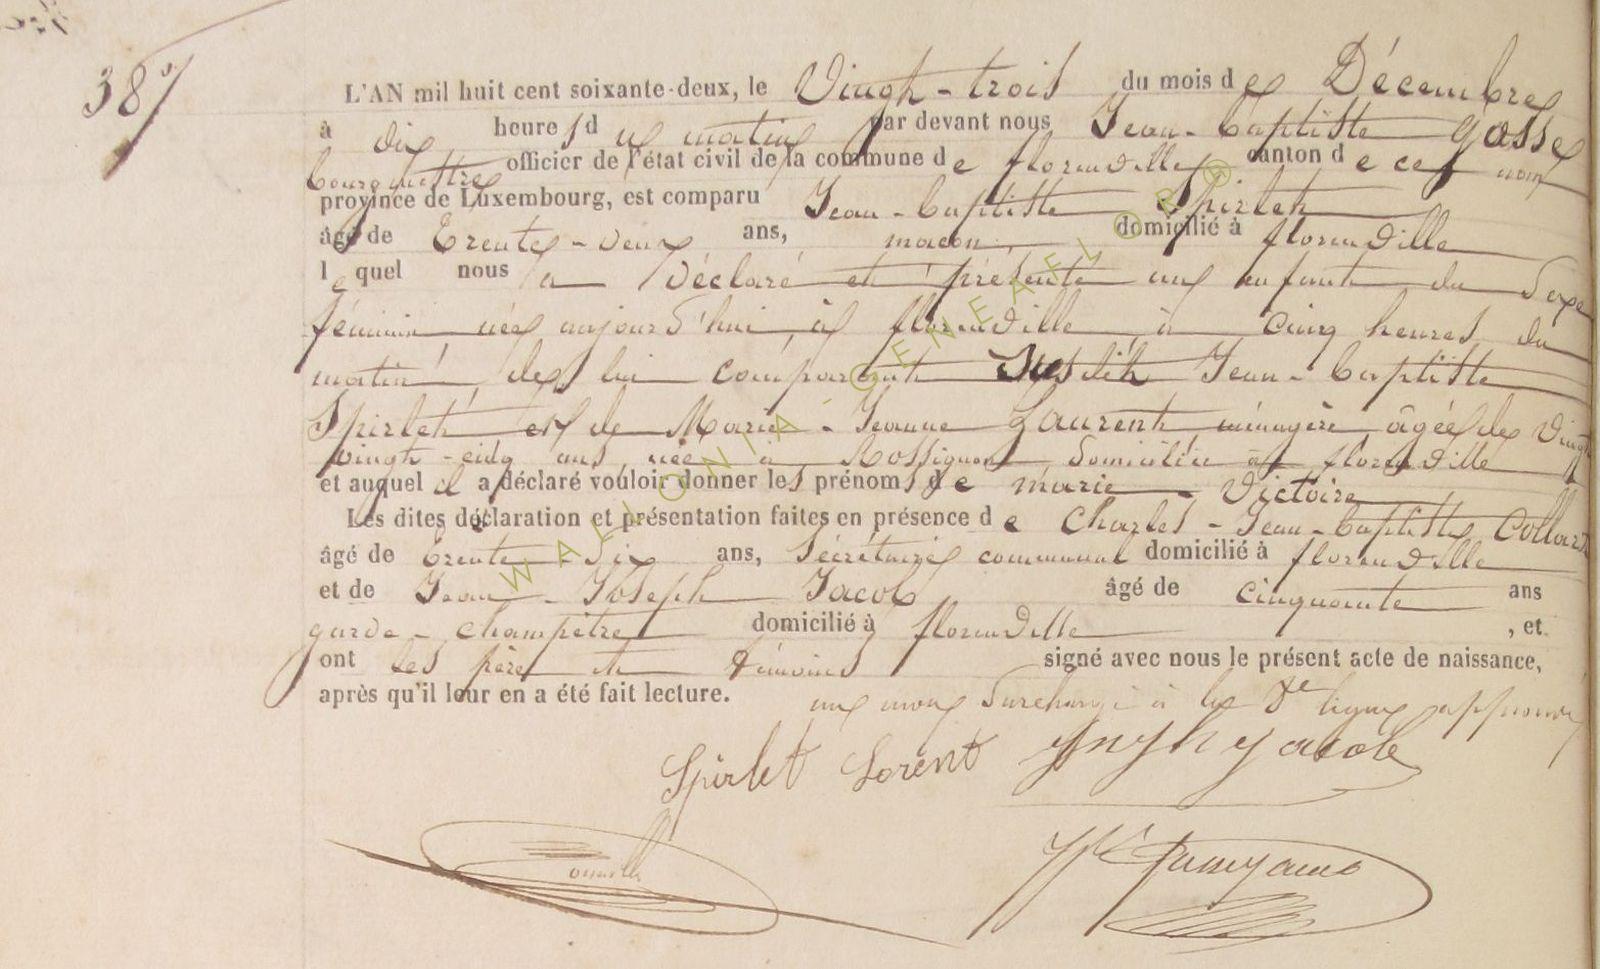 38
L'AN mil huit cent soixante-deux, le Vingt-trois du mois de Décembre
à dix heures du matin par devant nous Jean-baptiste gosse
bourgmestre officier de l'état civil de la commune de florenville canton de ce nom
province de Luxembourg, est comparu Jean-baptiste Spirlet
âgé de Trente-deux ans, macon domicilié à florenville
lequel nous a déclaré et présenté un enfant du Sexe
féminin née aujourd'hui à florenville à cinq heures du
matin, de lui comparant Jean-baptiste
Spirlet et de Marie-Jeanne Laurent ménagère âgée de Vingt
vingt-cinq ans née à Rossignol domiciliée à florenville
et auquel il a déclaré vouloir donner les prénoms de marie-Victoire
Les dites déclaration et présentation faites en présence de Charles-Jean-baptiste Collard
âgé de Trente Six ans, Sécrétaire communal domicilié à florenville
et de Jean-Joseph Jacob âgé de cinquante ans
garde-champêtre domicilié à florenville, et
ont les père et témoins signé avec nous le présent acte de naissance,
après qu'il leur en a été fait lecture. un mot Surchargé à la 8e ligne approuvé
Spirlet Lorent Jacob
WALLONIA-GENEALOR®